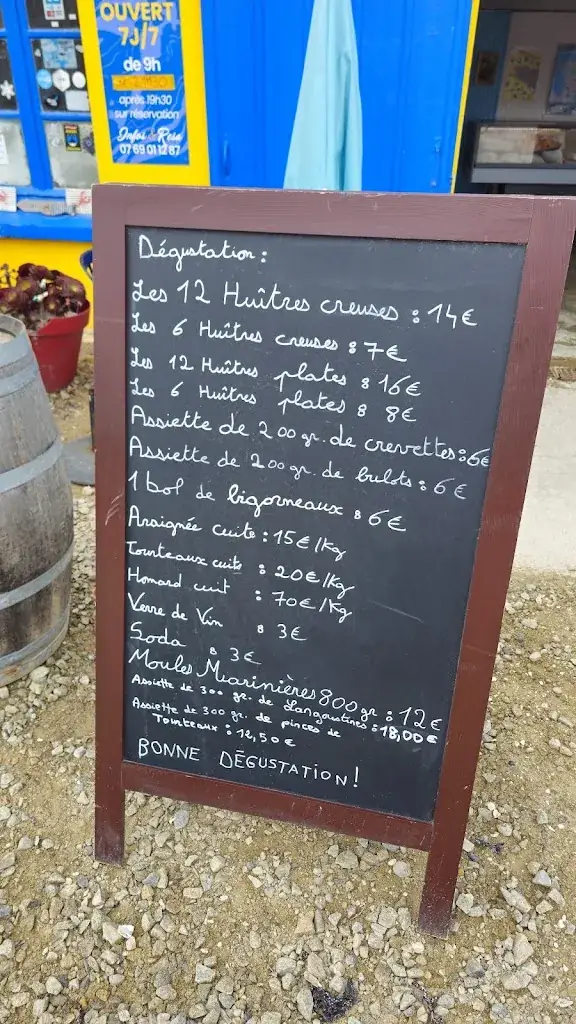 OUVERT
7J/7
de 9h
après 19h30
sur réservation
Infos & Resa
07 69 01 12 87
Dégustation :
Les 12 Huîtres creuses : 14€
Les 6 Huîtres creuses : 7€
Les 12 Huîtres plates : 16€
Les 6 Huîtres plates : 8€
Assiette de 200 gr. de crevettes : 6€
Assiette de 200 gr. de bulots : 6€
1 bol de bigorneaux : 6€
Araignée cuite : 15€/kg
Tourteaux cuits : 20€/kg
Homard cuit : 70€/kg
Verre de Vin : 3€
Soda : 3€
Moules Marinières 800gr : 12€
Assiette de 300 gr. de Langoustines : 18,00€
Assiette de 300 gr. de pinces de
Tourteaux : 12,50€
BONNE DÉGUSTATION !